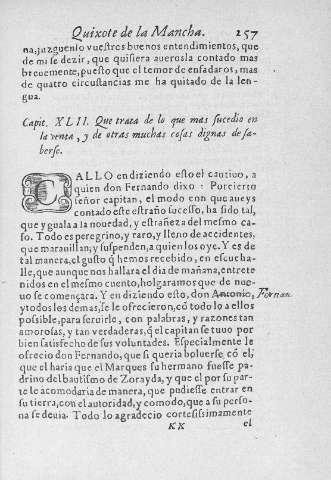 Quixote de la Mancha. 257
na, juzguenlo vuestros buenos entendimientos, que
de mi se dezir, que quisiera auerosla contado mas
breuemente, puesto que el temor de enfadaros, mas
de quatro circustãcias me ha quitado de la len-
gua.
Capit. XLII. Que trata de lo que mas sucedio en
la venta, y de otras muchas cosas dignas de sa-
berse.
CALLO en diziendo esto el cautiuo, a
quien don Fernando dixo: Por cierto
señor capitan, el modo con que aueys
contado este estraño sucesso, ha sido tal,
que yguala a la nouedad, y estrañeza del mesmo ca-
so. Todo es peregrino, y raro, y lleno de accidentes,
que marauillan, y suspenden, a quien los oye. Y es de
tal manera, el gusto q̃ hemos recebido, en escucha-
lle, que aunque nos hallara el dia de mañana, entrete
nidos en el mesmo cuento, holgaramos que de nue-
uo se començara. Y en diziendo esto, don Antonio, Fernan.
y todos los demas, se le ofrecieron, cõ todo lo a ellos
possible, para seruirle, con palabras, y razones tan
amorosas, y tan verdaderas, q̃ el capitan se tuuo por
bien satisfecho de sus voluntades. Especialmente le
ofrecio don Fernando, que si queria boluerse, cõ el,
que el haria que el Marques su hermano fuesse pa-
drino del bautismo de Zorayda, y que el por su par-
te le acomodaria de manera, que pudiesse entrar en
su tierra, con el autoridad, y comodo, que a su perso-
na se deuia. Todo lo agradecio cortesissimamente
KK el